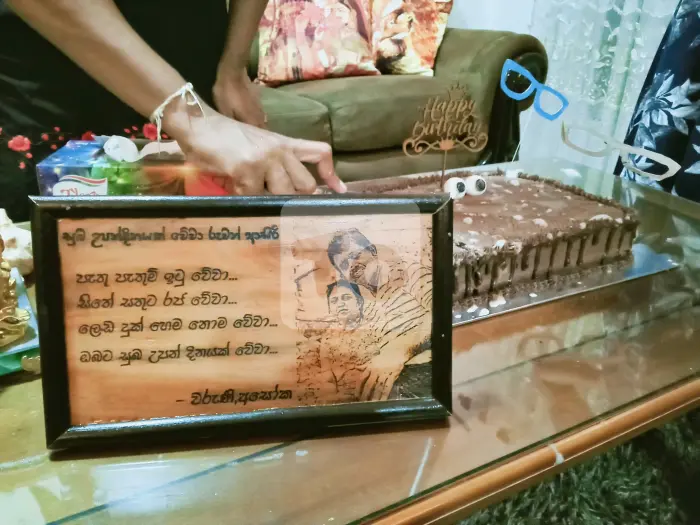 Happy
Birthday
සුබ උපන්දිනයක් වේවා රුවන් අයියේ
පැතු පැතුම් ඉටු වේවා...
සිතේ සතුට රජ වේවා...
ලෙඩ දුක් හෙම නොම වේවා...
ඔබට සුබ උපන් දිනයක් වේවා...
- වරුණි,අසෝක